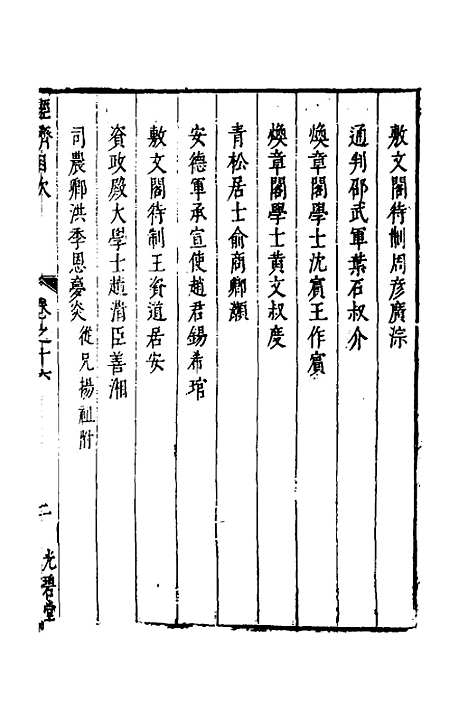 敷文閣待制周彥廣淙
通判邵武軍葉石叔介
煥章閣學士沈賓王作賓
煥章閣學士黃文叔度
青松居士俞商卿灝
安德軍承宣使趙君錫希琯
敷文閣待制王資道居安
資政殿大學士趙清臣善湘
司農卿洪季思慶炎 從兄揚祖附
經濟目次 卷之十六 二 光碧堂